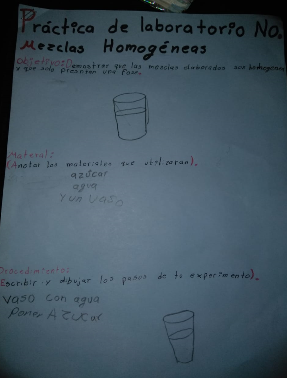 Práctica de laboratorio No.
Mezclas Homogéneas
Objetivo: Demostrar que las mezclas elaboradas son homogéneas
y que solo presentan una fase.
Material:
(Anotar los materiales que utilizaran).
azúcar
agua
Y un VASO
Procedimiento:
Escribir y dibujar los pasos de tu experimento).
VASO con agua
Poner AZUCAR